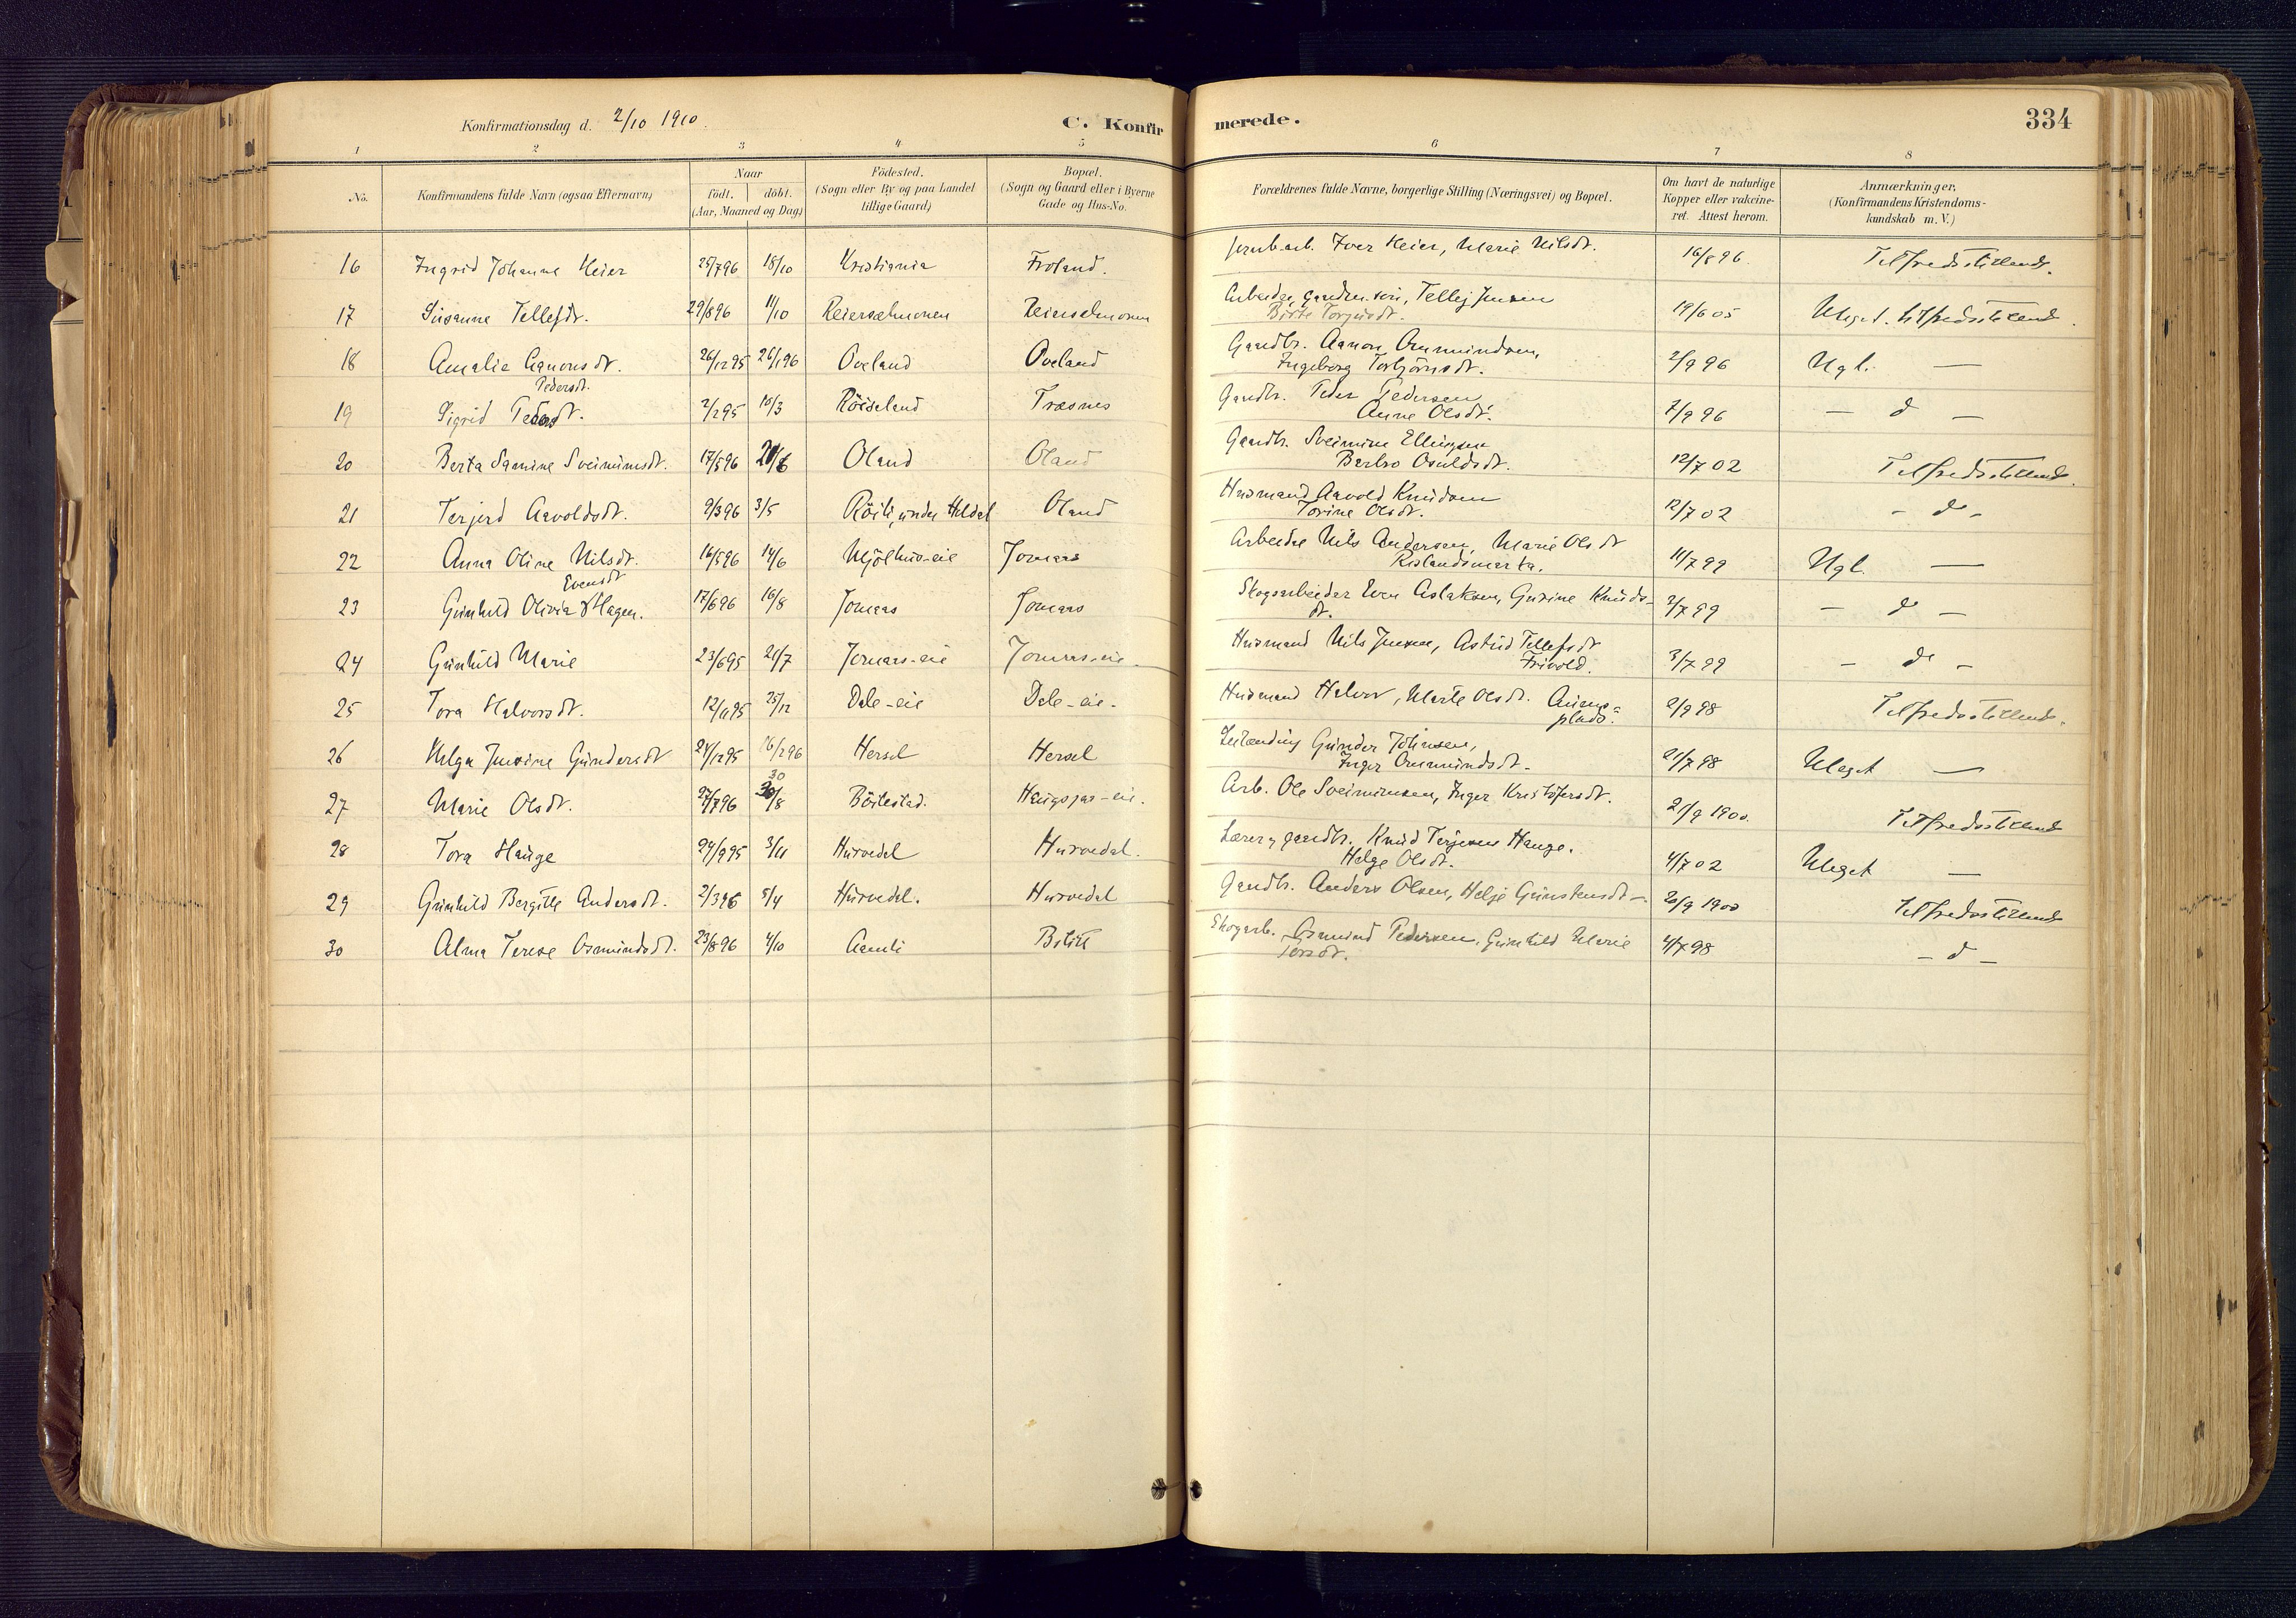 Konfirmationsdag d. 2/10 1910.
C. Konfirmerede.
334
1 2 3 4 5 6 7 8
No. Konfirmandens fulde Navn (ogsaa Efternavn) Naar födt. döbt. (Aar, Maaned og Dag) Födested. (Sogn eller By og paa Landet tillige Gaard) Bopæl. (Sogn og Gaard eller i Byerne Gade og Hus-No. Forældrenes fulde Navne, borgerlige Stilling (Næringsvei) og Bopæl. Om havt de naturlige Kopper eller vakcineret. Attest herom. Anmærkninger. (Konfirmandens Kristendomskundskab m. V.)
16 Ingrid Johanne Heier 25/7 96 18/10 Kristiania Froland. Jernb.arb. Iver Heier, Marie Nilsdt. 16/8 96. Tilfredsstillende.
17 Susanne Tellefsdt. 29/8 96 11/10 Reierselmonen Reierselmonen Arbeider, Tellef Jensen 19/6 05 Meget tilfredsstillende.
18 Amalie Aanonsdt. 26/12 95 26/1 96 Oveland Oveland Gaardbr. Aanon Omundsen, Ingeborg Torbjörnsdt. 2/9 96 Mgt. —
19 Sigrid Pedersdt. 2/2 95 15/3 Röiseland Træsnes Gaardbr. Peder Pedersen, Anne Olsdt. 7/9 96 — d —
20 Berta Samine Sveinumsdt. 17/5 96 21/6 Oland Oland Gaardb. Sveinung Ellingsen Barbro Osuldsdt. 12/7 02 Tilfredsstillende.
21 Terjerd Aavoldsdt. 9/3 96 3/5 Röili, under Heldal Oland Husmand Aavold Knudsen Torine Olsdt. 12/7 02 - do -
22 Anna Oline Nilsdt. 16/5 96 14/6 Mjölhus-eie Jomaas Arbeider Nils Andersen, Marie Olsdt Rislandsmarka. 11/7 99 Mgt. —
23 Gunhild Olivia Evensdt Hagen. 17/6 96 16/8 Jomaas Jomaas Skogsarbeider Even Aslaksen, Gurine Knudsdt. 3/7 99 — do —
24 Gunhild Marie 23/6 95 21/7 Jomaas-eie Jomaas-eie Husmand Nils Jensen, Astrid Tellefsdt Frivold. 3/7 99 — do —
25 Tora Halvorsdt. 12/11 95 25/12 Dale-eie Dale-eie. Husmand Halvor, Marte Olsdt. 2/9 98 Tilfredsstillende.
26 Helga Jensine Gundersdt 24/12 95 16/2 96 Hersel Hersel Leilænding Gunder Johnsen, Inger Omundsdt. 21/7 98 Meget —
27 Marie Olsdt. 27/7 96 30/8 Böilestad. Haugsjaa-eie. Arb. Ole Sveinumsen, Inger Kristofersdt. 21/9 1900. Tilfredsstillende
28 Tora Hauge 24/9 95 3/11 Hurvedal Hurvedal. Lærer og gaardbr. Knud Terjesen Hauge. Helge Olsdt. 4/7 02 Meget —
29 Gunhild Bergitte Andersdt. 2/3 96 5/4 Hurvedal. Hurvedal Gaardb. Anders Olsen, Helje Gunstensdt 20/9 1900 tilfredsstillende
30 Alma Terese Osmundsdt. 23/8 96 4/10 Aamli Skogarb. Osmund Pedersen, Gunhild Marie Torsdt. 4/7 98 - d -